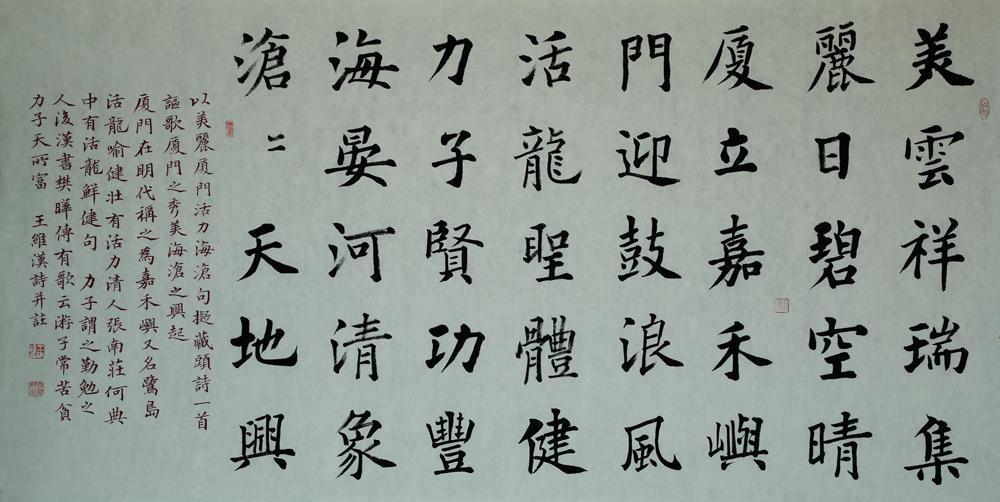 美雲祥瑞集
麗日碧空晴
厦立嘉禾嶼
門迎鼓浪風
活龍聖體健
力子賢功豐
海晏河清象
滄〻天地興
以美麗厦門活力海滄句擬藏頭詩一首
謳歌厦門之秀美海滄之興起
厦門在明代稱之為嘉禾嶼又名鷺島
活龍喻健壯有活力清人張南莊何典
中有活龍鮮健句 力子謂之勤勉之
人後漢書樊曄傳有歌云游子常苦貧
力子天所富 王維漢詩并註